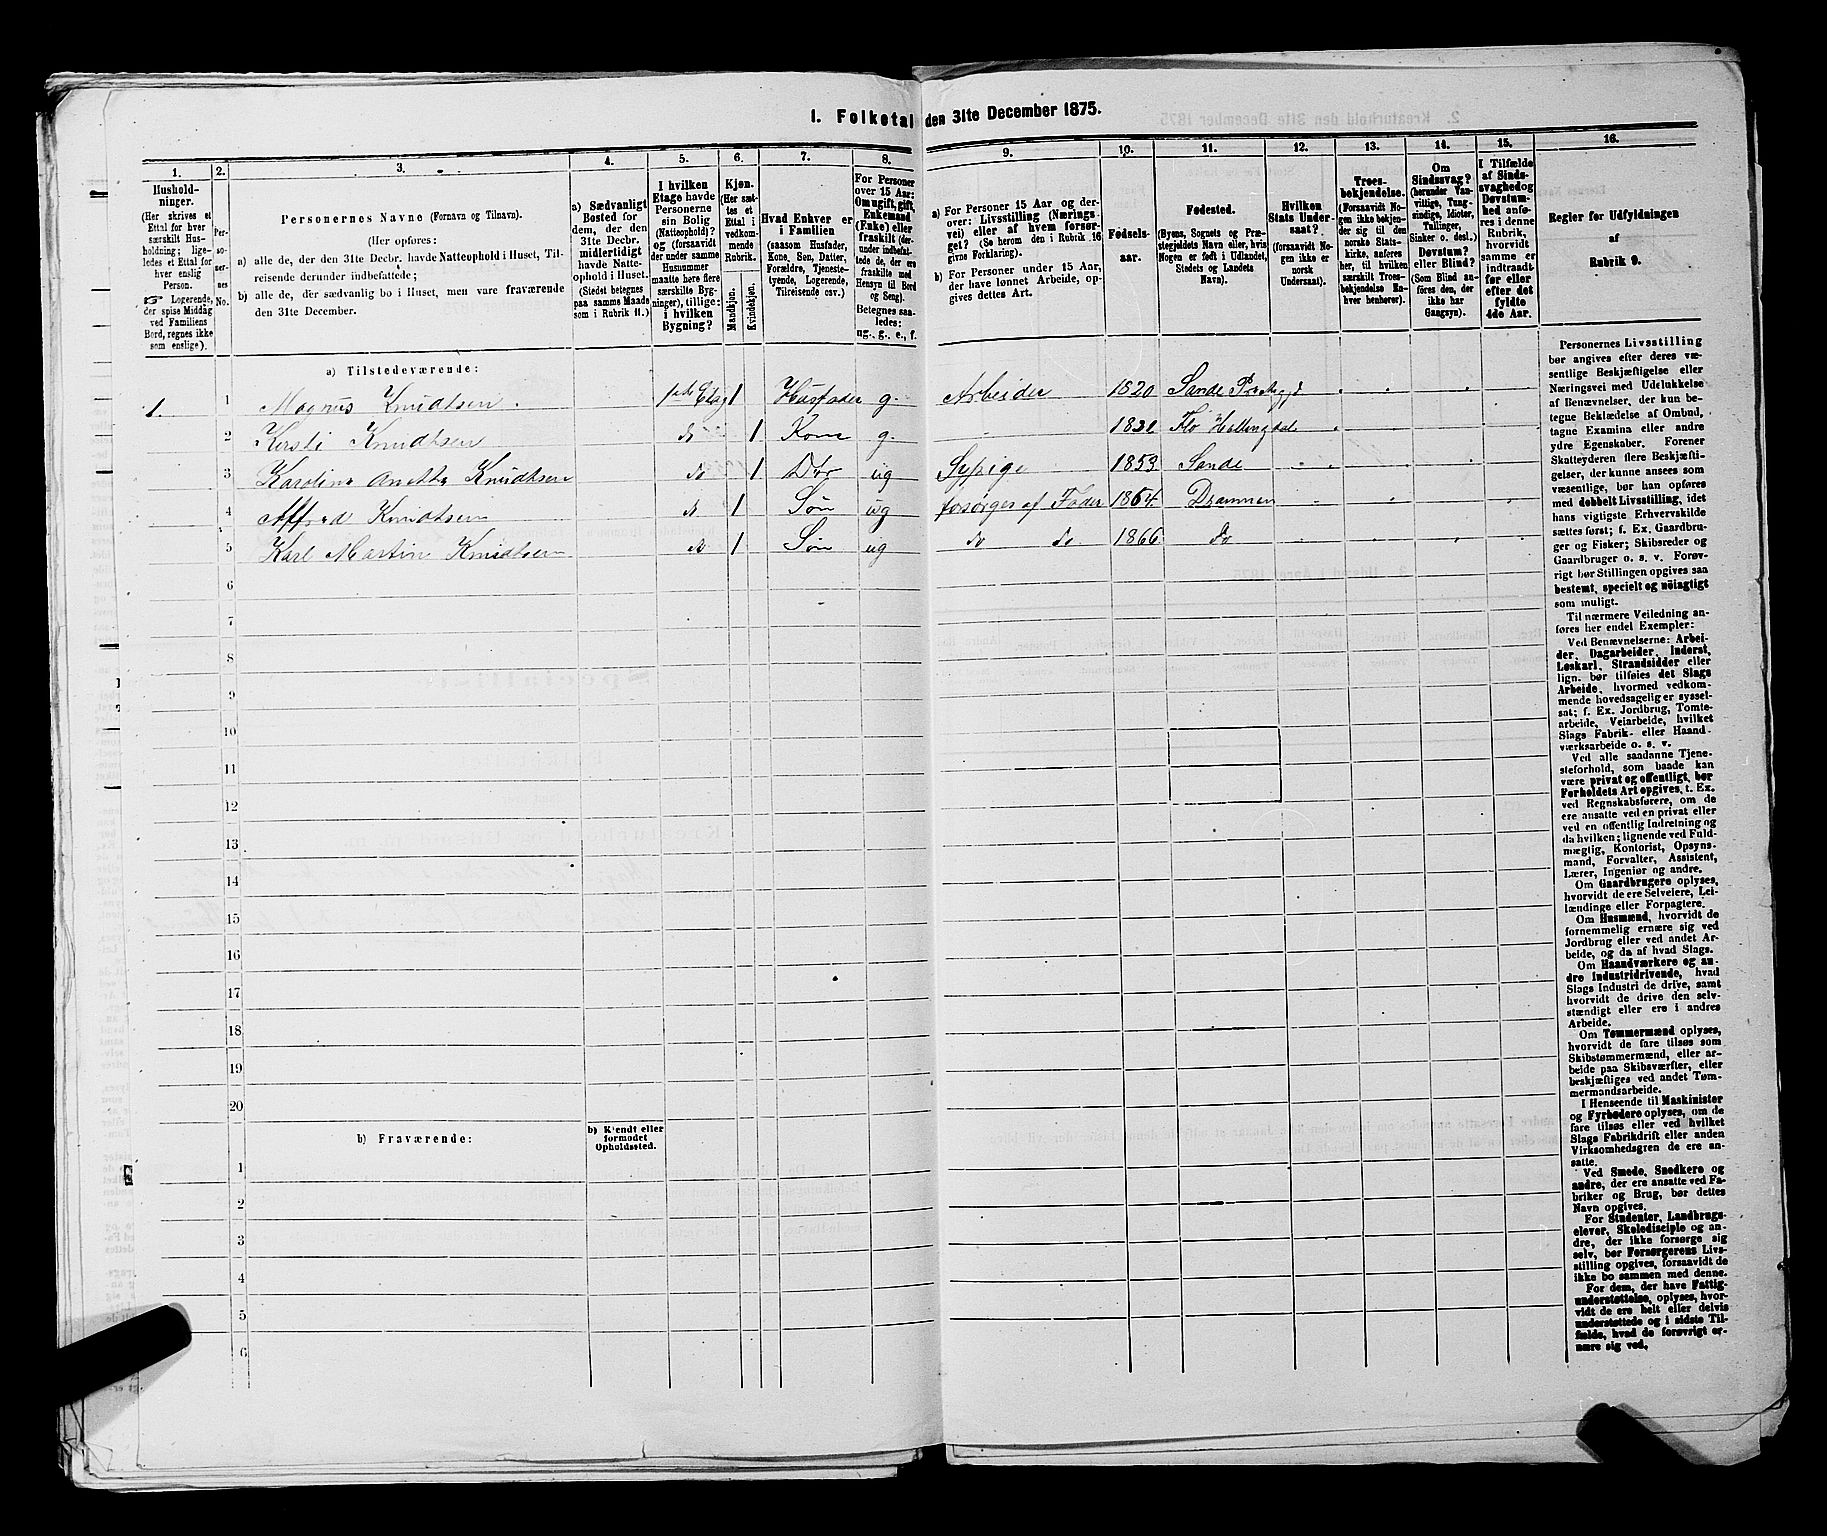 1. Folketal den 31te December 1875.
1. 2. 3. 4. 5. 6. 7. 8. 9. 10. 11. 12. 13. 14. 15. 16.
Husholdninger.
(Her skrives et
Ettal for hver
særskilt Husholdning;
ligeledes et Ettal for
hver enslig
Person.
☞ Logerende,
der spise Middag
ved Familiens
Bord, regnes ikke
som enslige).
Personernes No.
Personernes Navne (Fornavn og Tilnavn).
(Her opføres:
a) alle de, der den 31te Decbr. havde Natteophold i Huset, Tilreisende derunder indbefattede;
b) alle de, der sædvanlig bo i Huset, men vare fraværende
den 31te December.
a) Sædvanligt
Bosted for
dem, der den
31te Decbr.
midlertidigt
havde Natteophold i Huset.
(Stedet betegnes
paa samme Maade
som i Rubrik 11.)
I hvilken
Etage havde
Personerne
sin Bolig
(Natteophold)?
og (forsaavidt
der under samme
Husnummer
maatte høre flere
særskilte Bygninger), tillige:
i hvilken
Bygning?
Kjøn.
(Her sættes et
Ettal i
vedkommende
Rubrik.
Mandkjøn.
Kvindekjøn.
Hvad Enhver er
i Familien
(saasom Husfader,
Kone, Søn, Datter,
Forældre, Tjenestetyende, Logerende,
Tilreisende osv.)
For Personer
over 15 Aar:
Om ugift, gift,
Enkemand
(Enke) eller
fraskilt (derunder indbefattede de, der ere
fraskilte med
Hensyn til Bord
og Seng).
Betegnes saaledes:
ug., g., e., f.
a) For Personer 15 Aar og derover: Livsstilling (Næringsvei) eller af hvem forsørget? (Se herom den i Rubrik 16
givne Forklaring).
b) For Personer under 15 Aar,
der have lønnet Arbeide, opgives dettes Art.
Fødselsaar.
Fødested.
(Byens, Sognets og Præstegjeldets Navn eller, hvis
Nogen er født i Udlandet,
Stedets og Landets
Navn).
Hvilken
Stats Undersaat?
(forsaavidt Nogen ikke er
norsk
Undersaat).
Troesbekjendelse.
(Forsaavidt Nogen ikke bekjender sig til den
norske Statskirke, anføres
her, til hvilken
særskilt Troesbekjendelse Enhver henhører).
Om
Sindssvag?
(herunder Vanvittige, Tungsindige, Idioter,
Tullinger,
Sinker o. desl.)
Døvstum?
eller Blind?
(Som Blind anføres den, der
ikke har
Gangsyn).
I Tilfælde
af Sindssvaghed og
Døvstumhed anføres i denne
Rubrik,
hvorvidt
samme er
indtraadt
før eller
efter det
fyldte
4de Aar.
Regler for Udfyldningen
af
Rubrik 9.
a) Tilstedeværende:
1. 1 Magnus Knudtsen 1ste Etag 1 Husfader g. Arbeider 1820 Sande Præstegjd
2 Kersti Knudtsen do 1 Kone g. Hallingdal
3 Karoline Anetthe Knudtsen do 1 Dtr ug Sypige 1853 Sande
4 Alfred Knudtsen do 1 Søn ug forsørges af Fader 1864. Drammen
5 Karl Martin Knudtsen do 1 Søn ug do do 1866 do
6
7
8
9
10
11
12
13
14
15
16
17
18
19
20
b) Fraværende:
b) Kjendt eller
formodet
Opholdssted.
1
2
3
4
5
6
Personernes Livsstilling
bør angives efter deres væsentlige Beskjæftigelse eller
Næringsvei med Udelukkelse
af Benævnelser, der kun betegne Beklædelse af Ombud,
tagne Examina eller andre
ydre Egenskaber. Forener
Skatteyderen flere Beskjæftigelser, der kunne ansees som
væsentlige, bør han opføres
med dobbelt Livsstilling, idet
hans vigtigste Erhvervskilde
sættes først; f. Ex. Gaardbruger og Fisker; Skibsreder og
Gaardbruger o. s. v. Forøvrigt bør Stillingen opgives saa
bestemt, specielt og nöiagtigt
som muligt.
Til nærmere Veiledning anføres her endel Exempler:
Ved Benævnelserne: Arbeider, Dagarbeider, Inderst,
Løskarl, Strandsidder eller
lign. bør tilføies det Slags
Arbeide, hvormed vedkommende hovedsagelig er sysselsat; f. Ex. Jordbrug, Tomtearbeide, Veiarbeide, hvilket
Slags Fabrik- eller Haandværksarbeide o. s. v.
Ved alle saadanne Tjenesteforhold, som baade kan
være privat og offentligt, bør
Forholdets Art opgives, t. Ex.
ved Regnskabsførere, om de
ere ansatte ved en privat eller
ved en offentlig Indretning og
da hvilken; lignende ved Fuldmægtig, Kontorist, Opsynsmand, Forvalter, Assistent,
Lærer, Ingeniør og andre.
Om Gaardbrugere oplyses,
hvorvidt de ere Selveiere, Leilændinge eller Forpagtere.
Om Husmænd, hvorvidt de
fornemmelig ernære sig ved
Jordbrug eller ved andet Arbeide, og da af hvad Slags.
Om Haandværkere og andre Industridrivende, hvad
Slags Industri de drive, samt
hvorvidt de drive den selvstændigt eller ere i andres
Arbeide.
Om Tømmermænd oplyses,
hvorvidt de fare tilsøs som
Skibstømmermænd, eller arbeide paa Skibsværfter, eller
beskjæftiges ved andet Tømmermandsarbeide.
I Henseende til Maskinister
og Fyrbødere oplyses, om de
fare tilsøs eller ved hvilket
Slags Fabrikdrift eller anden
Virksomhedsgren de ere ansatte.
Ved Smede, Snedkere og
andre, der ere ansatte ved Fabriker og Brug, bør dettes
Navn opgives.
For Studenter, Landbrugselever, Skoledisciple og andre, der ikke forsørge sig
selv, bør Forsørgerens Livsstilling opgives, forsaavidt de
ikke bo sammen med denne.
For dem, der have Fattigunderstøttelse, oplyses, hvorvidt de ere helt eller delvis
understøttede og i sidste Tilfælde, hvad de forøvrigt ernære sig ved.